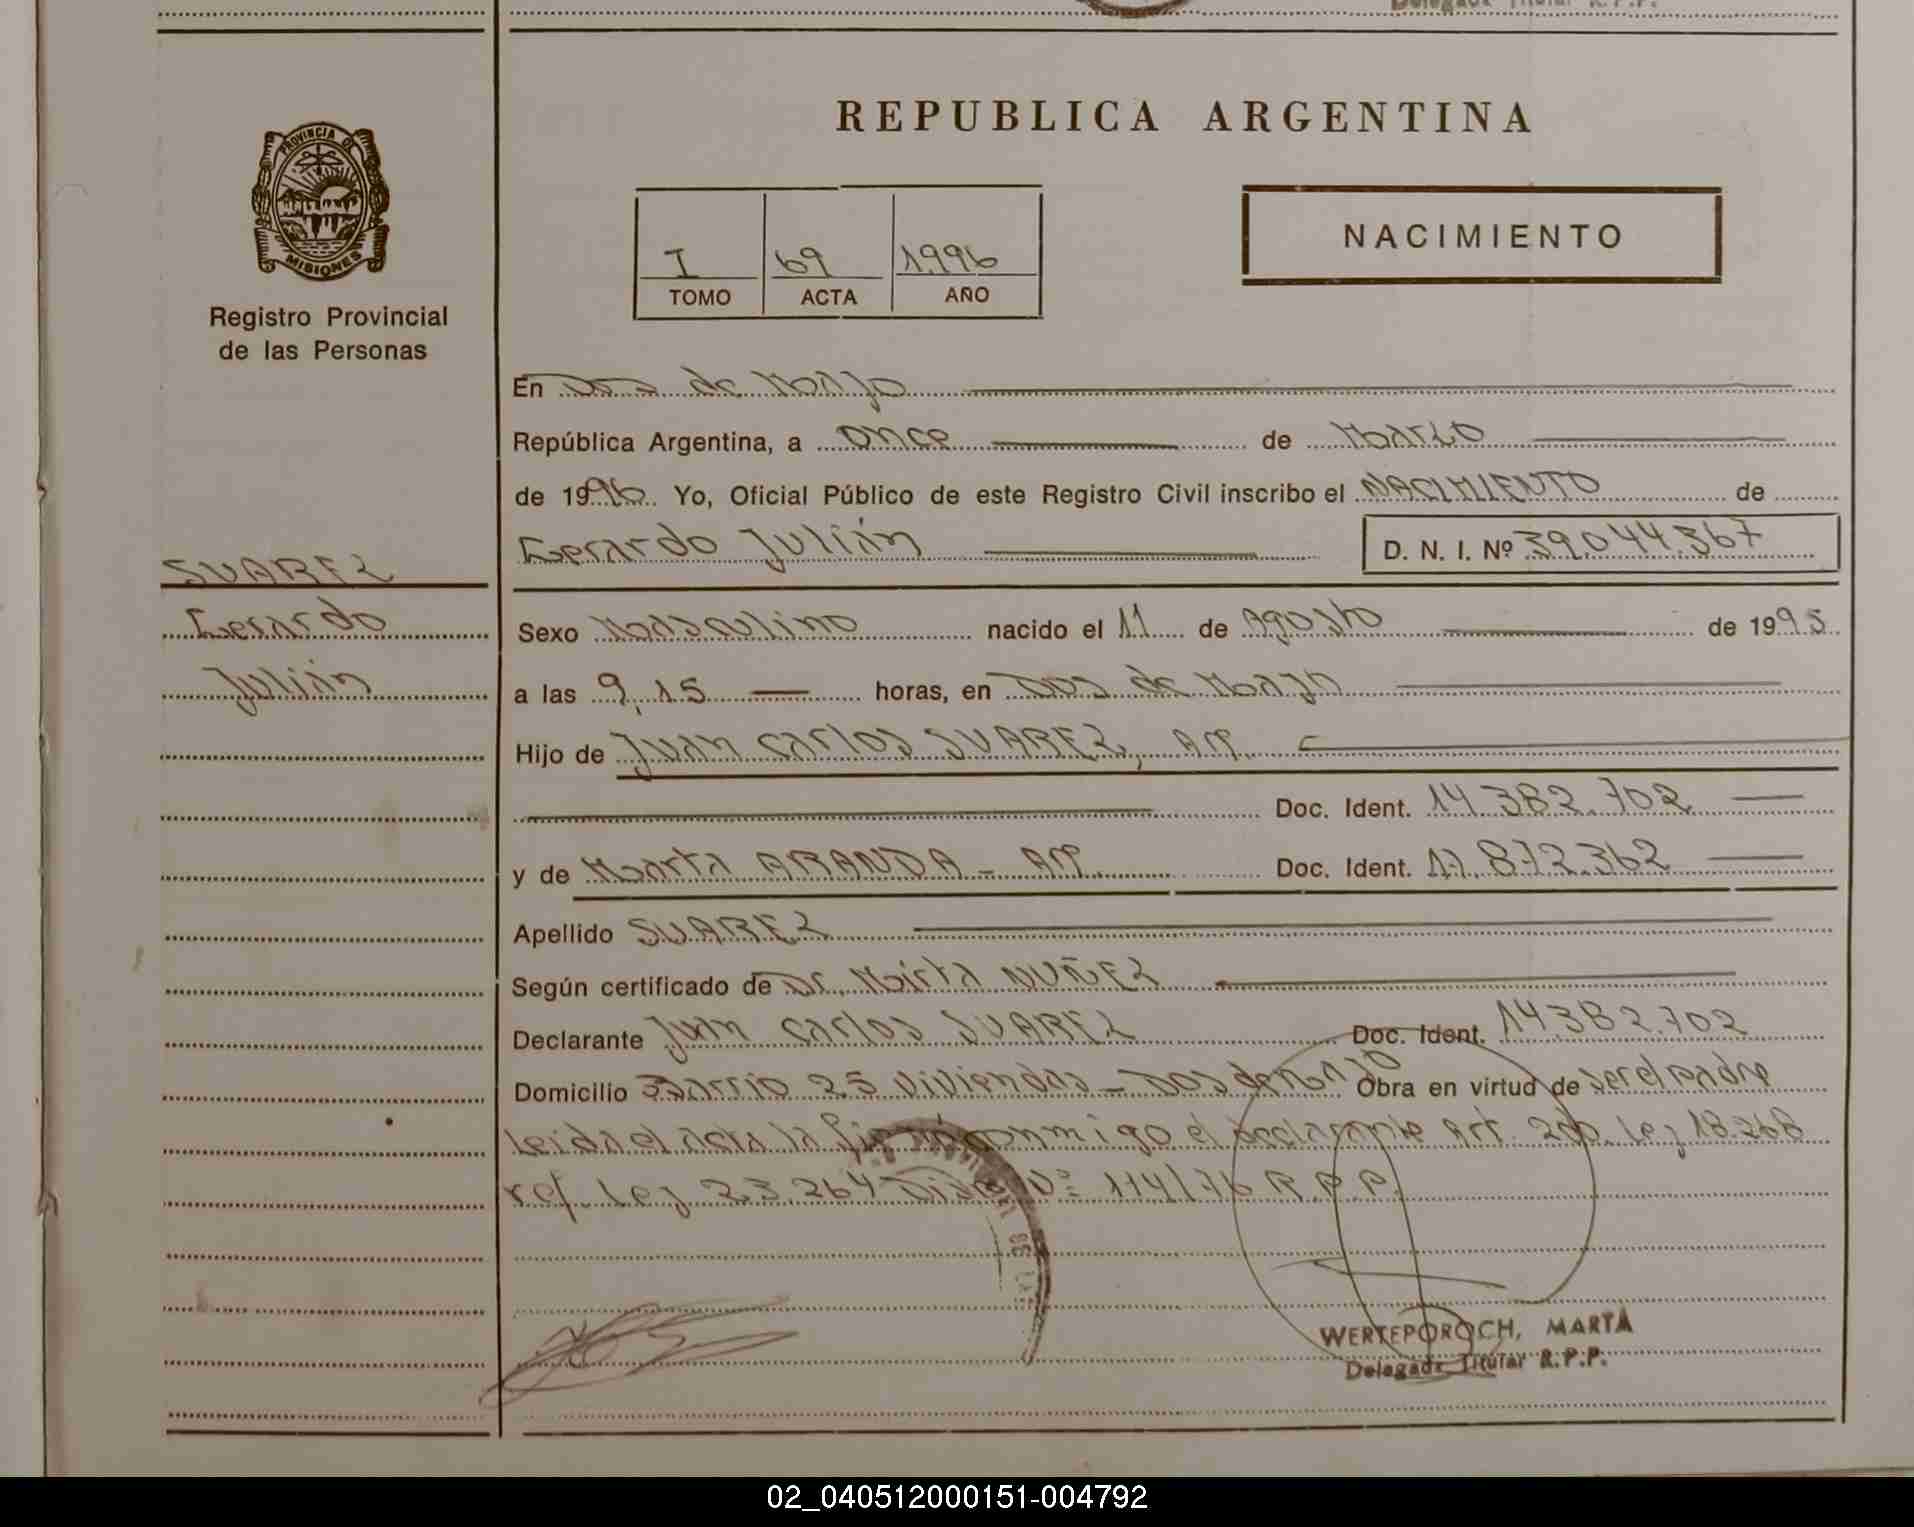 Delegada Titular R.P.P.
REPUBLICA ARGENTINA
PROVINCIA DE
MISIONES
Registro Provincial
de las Personas
I 69 1996
TOMO ACTA AÑO
NACIMIENTO
En Dos de Mayo
República Argentina, a once de Marzo
de 1996 Yo, Oficial Público de este Registro Civil inscribo el NACIMIENTO de
Gerardo Julián D. N. I. Nº 39.044.367
SUAREZ
Gerardo
Julián
Sexo Masculino nacido el 11 de Agosto de 1995
a las 9,15 horas, en Dos de Mayo
Hijo de Juan Carlos SUAREZ, Arg.
Doc. Ident. 14.382.702
y de Marta ARANDA - Arg. Doc. Ident. 17.872.362
Apellido SUAREZ
Según certificado de Dr. Mirta NUÑEZ
Declarante Juan Carlos SUAREZ Doc. Ident. 14382.702
Domicilio Barrio 25 viviendas - Dos de Mayo Obra en virtud de ser el padre
leida el acta la firmó conmigo el declarante Art. 2do. Ley 18.268
ref. Ley 23.264 Disp. Nº 114/76 R.P.P.
WERTEPOROCH, MARTA
Delegada Titular R.P.P.
02_040512000151-004792